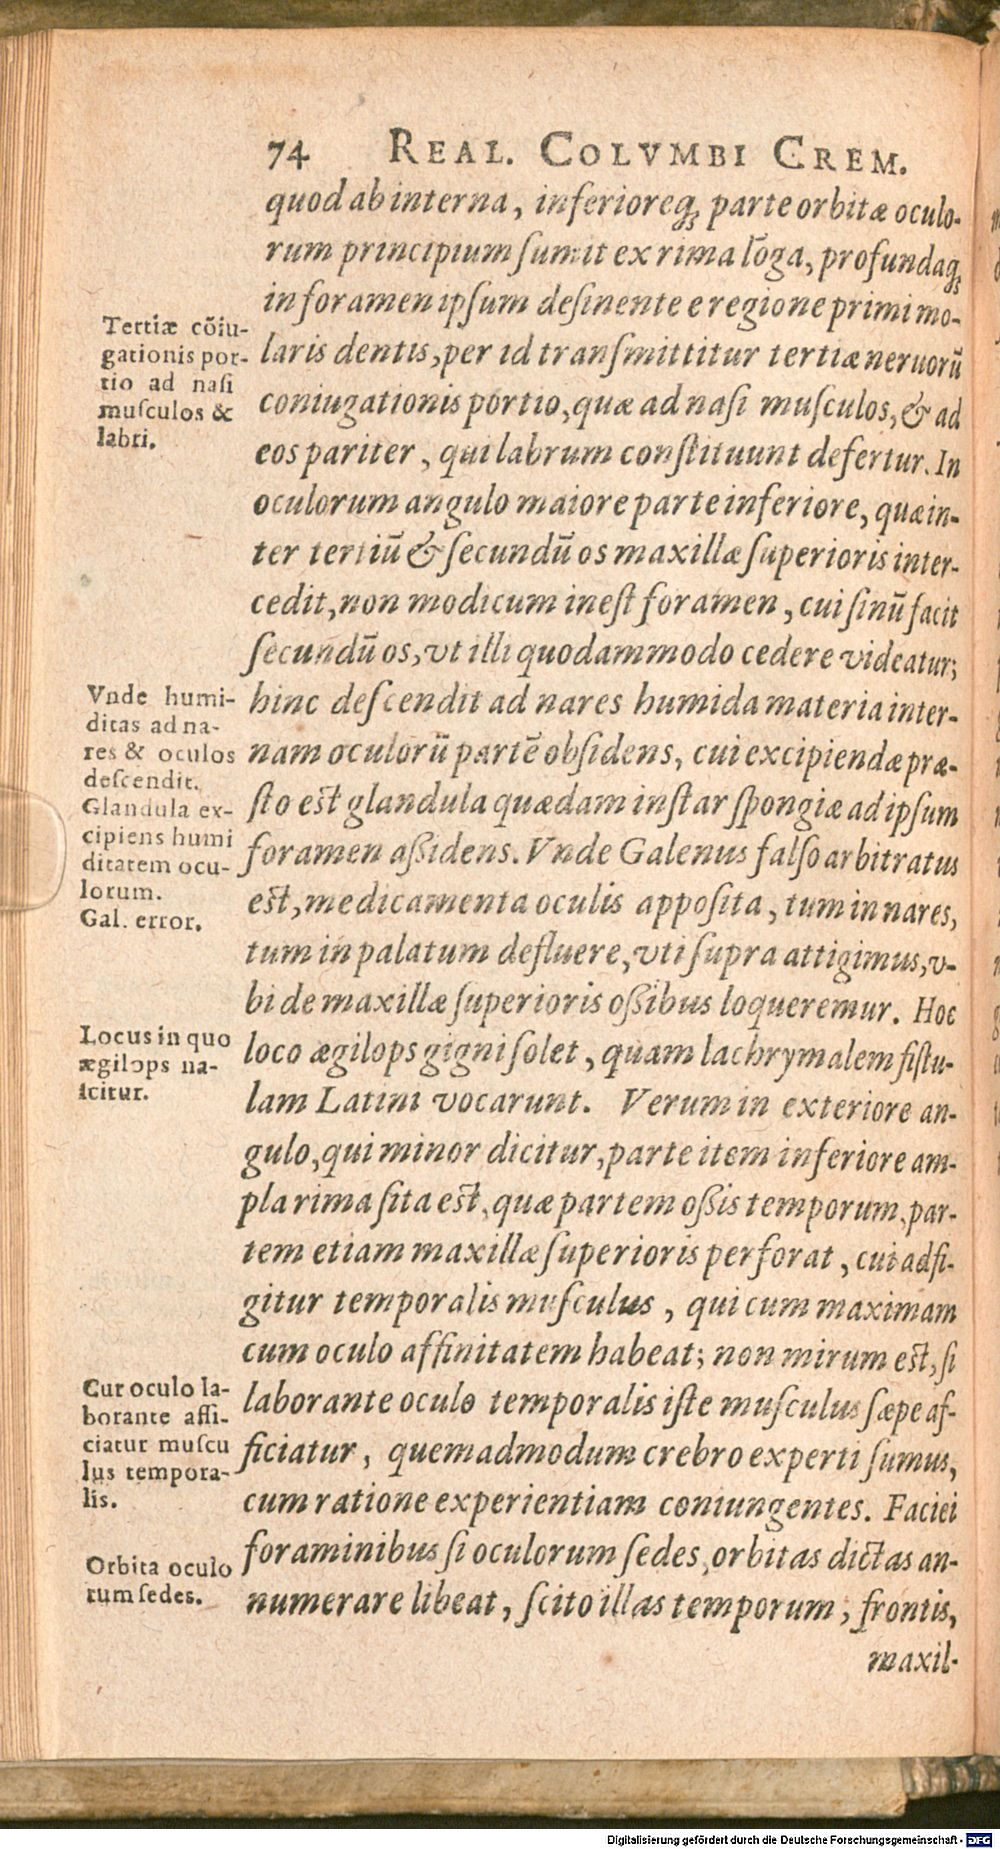 74 REAL. COLVMBI CREM.
quod ab interna, inferioreq́; parte orbitæ oculo-
rum principium sumit ex rima lōga, profundaq́;
in foramen ipsum desinente e regione primi mo-
laris dentis, per id transmittitur tertiæ neruorū
coniugationis portio, quæ ad nasi musculos, & ad
eos pariter, qui labrum constituunt defertur. In
oculorum angulo maiore parte inferiore, quæ in-
ter tertiū & secundū os maxillæ superioris inter-
cedit, non modicum inest foramen, cui sinū facit
secundū os, vt illi quodammodo cedere videatur;
hinc descendit ad nares humida materia inter-
nam oculorū partē obsidens, cui excipiendæ præ-
sto est glandula quædam instar spongiæ ad ipsum
foramen aßidens. Vnde Galenus falso arbitratus
est, medicamenta oculis apposita, tum in nares,
tum in palatum defluere, vti supra attigimus, v-
bi de maxillæ superioris oßibus loqueremur. Hoc
loco ægilops gigni solet, quam lachrymalem fistu-
lam Latini vocarunt. Verum in exteriore an-
gulo, qui minor dicitur, parte item inferiore am-
pla rima sita est, quæ partem oßis temporum, par-
tem etiam maxillæ superioris perforat, cui adfi-
gitur temporalis musculus, qui cum maximam
cum oculo affinitatem habeat; non mirum est, si
laborante oculo temporalis iste musculus sæpe af-
ficiatur, quemadmodum crebro experti sumus,
cum ratione experientiam coniungentes. Faciei
foraminibus si oculorum sedes, orbitas dictas an-
numerare libeat, scito illas temporum, frontis,
maxil-
Tertiæ cōiu-
gationis por-
tio ad nasi
musculos &
labri.
Vnde humi-
ditas ad na-
res & oculos
descendit.
Glandula ex-
cipiens humi
ditatem ocu-
lorum.
Gal. error.
Locus in quo
ægilops na-
scitur.
Cur oculo la-
borante affi-
ciatur muscu
lus tempora-
lis.
Orbita oculo
rum sedes.
Digitalisierung gefördert durch die Deutsche Forschungsgemeinschaft - DFG